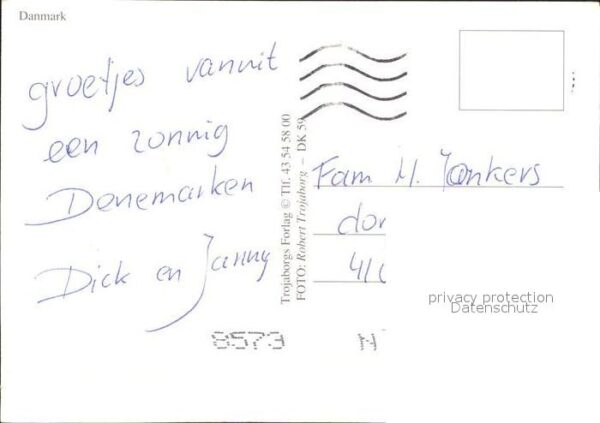 Danmark
groetjes vanuit
een zonnig
Denemarken
Dick en Janny
Trojaborgs Forlag © Tlf. 43 54 58 00
FOTO: Robert Trojaborg – DK 59
Fam M. Jonkers
dor
41
privacy protection
Datenschutz
8573 N